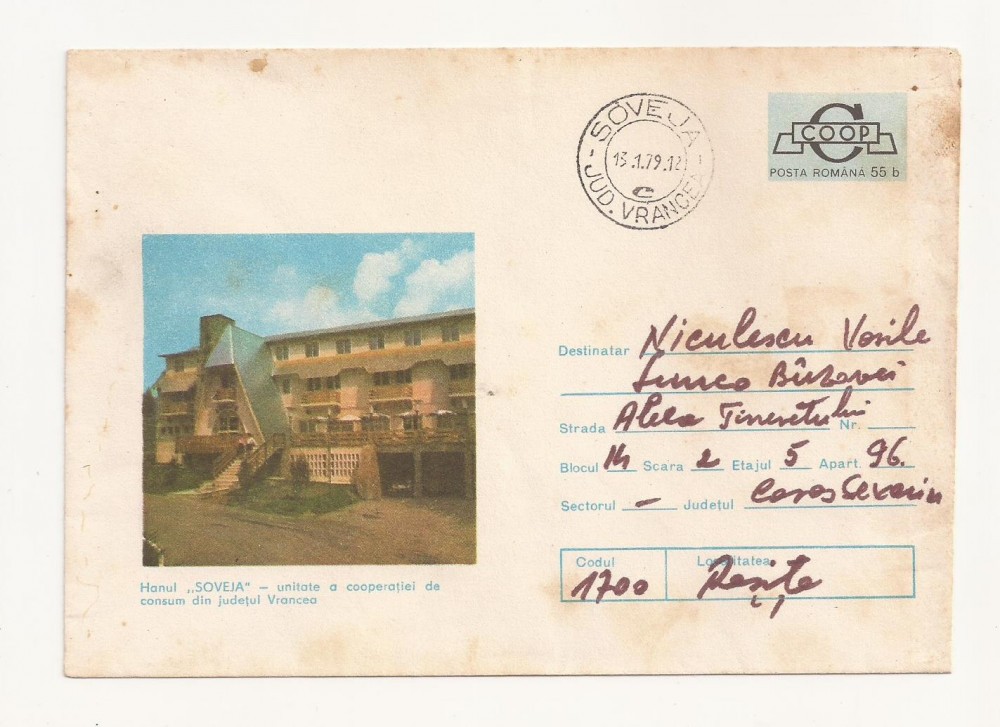 SOVEJA
13.1.79.12
JUD. VRANCEA
COOP
POSTA ROMÂNĂ 55 b
Destinatar Niculescu Vasile
Strada Aleea Tineretului Nr.
Blocul Scara 2 Etajul 5 Apart. 96.
Sectorul – Județul Caraș Severin
Codul Localitatea
1700 Reșița
Hanul ,,SOVEJA" – unitate a cooperației de
consum din județul Vrancea